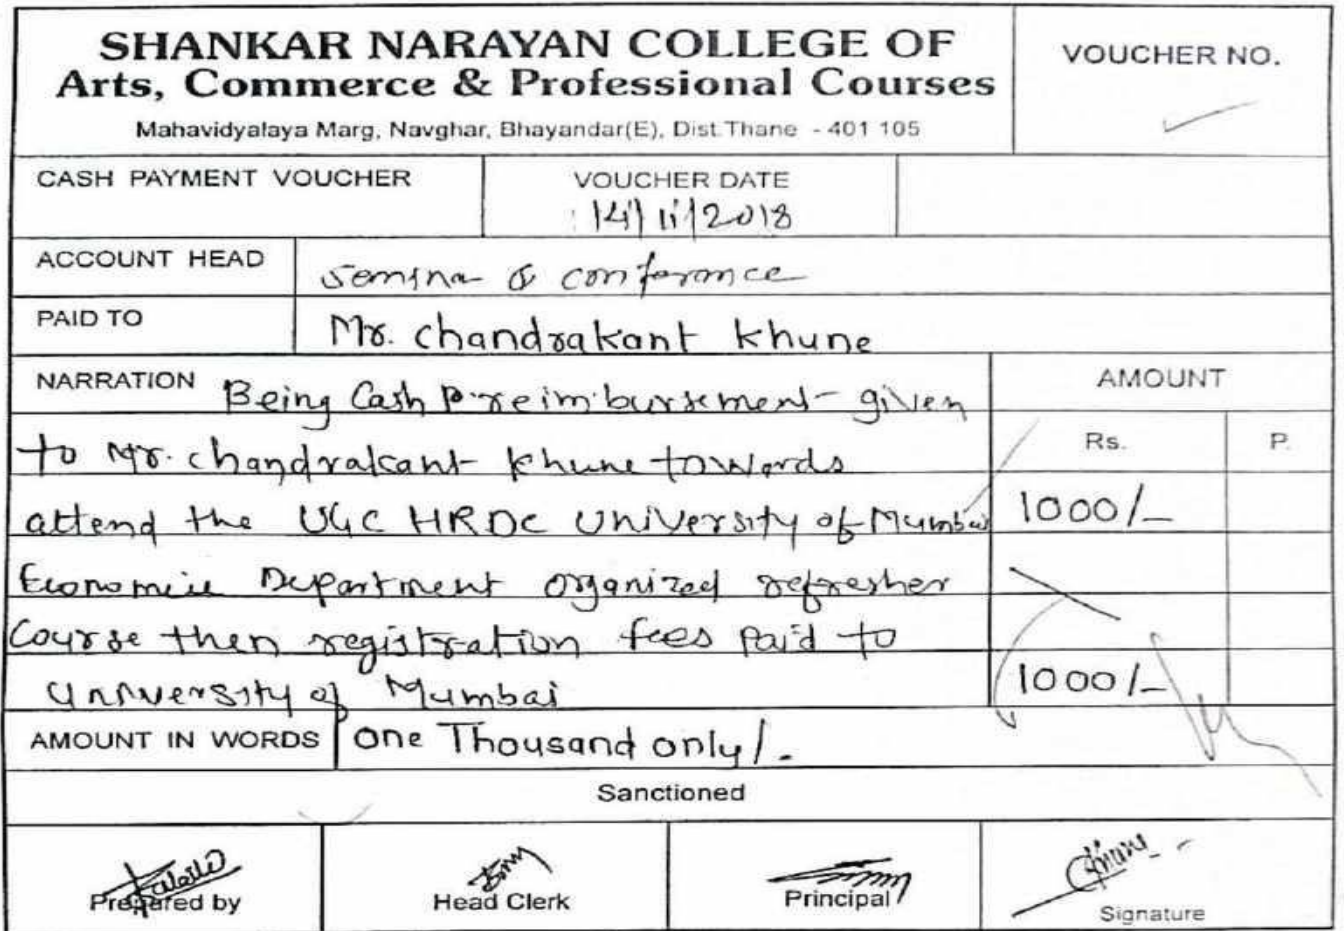 SHANKAR NARAYAN COLLEGE OF
Arts, Commerce & Professional Courses
Mahavidyalaya Marg, Navghar, Bhayandar(E), Dist.Thane - 401 105
VOUCHER NO.
CASH PAYMENT VOUCHER
VOUCHER DATE
14/11/2018
ACCOUNT HEAD
Semina & conferance
PAID TO
Mr. chandrakant khune
NARRATION Being Cash reimbursement given
to Mr. chandrakant khune towords
attend the UGC HRDC University of Mumbai
Department organized refresher
Course then registration fees paid to
University of Mumbai
AMOUNT
Rs. P.
1000/-
1000/-
AMOUNT IN WORDS One Thousand only/.
Sanctioned
Prepared by
Head Clerk
Principal
Signature